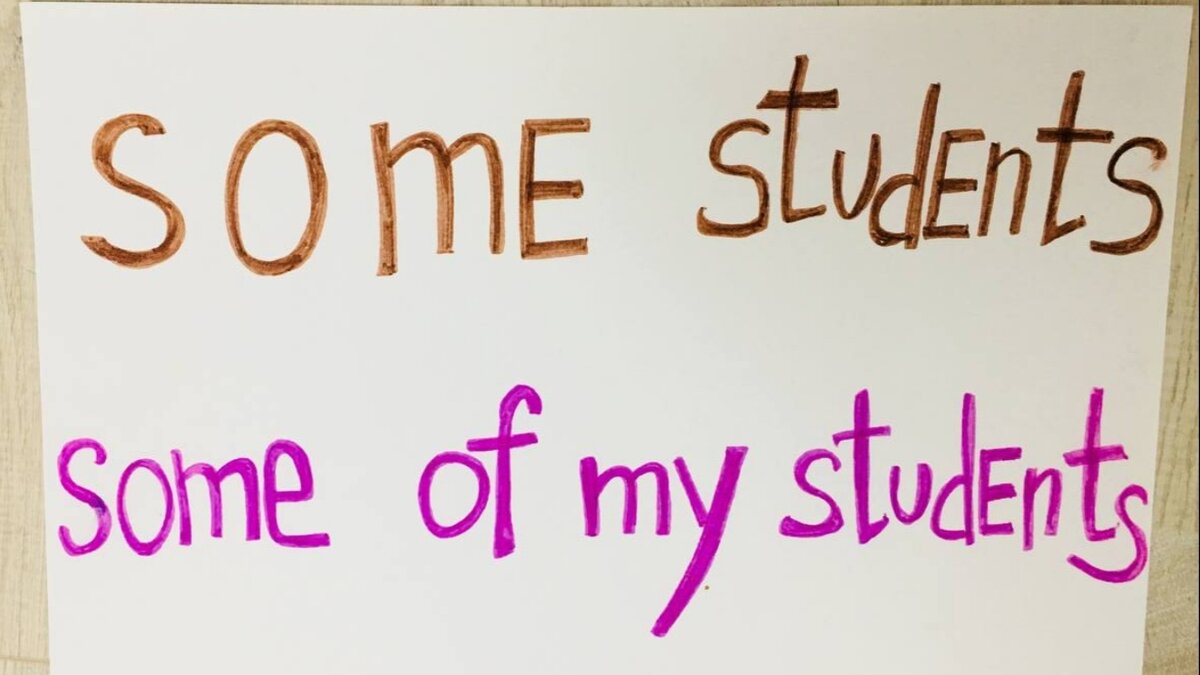 some students
some of my students